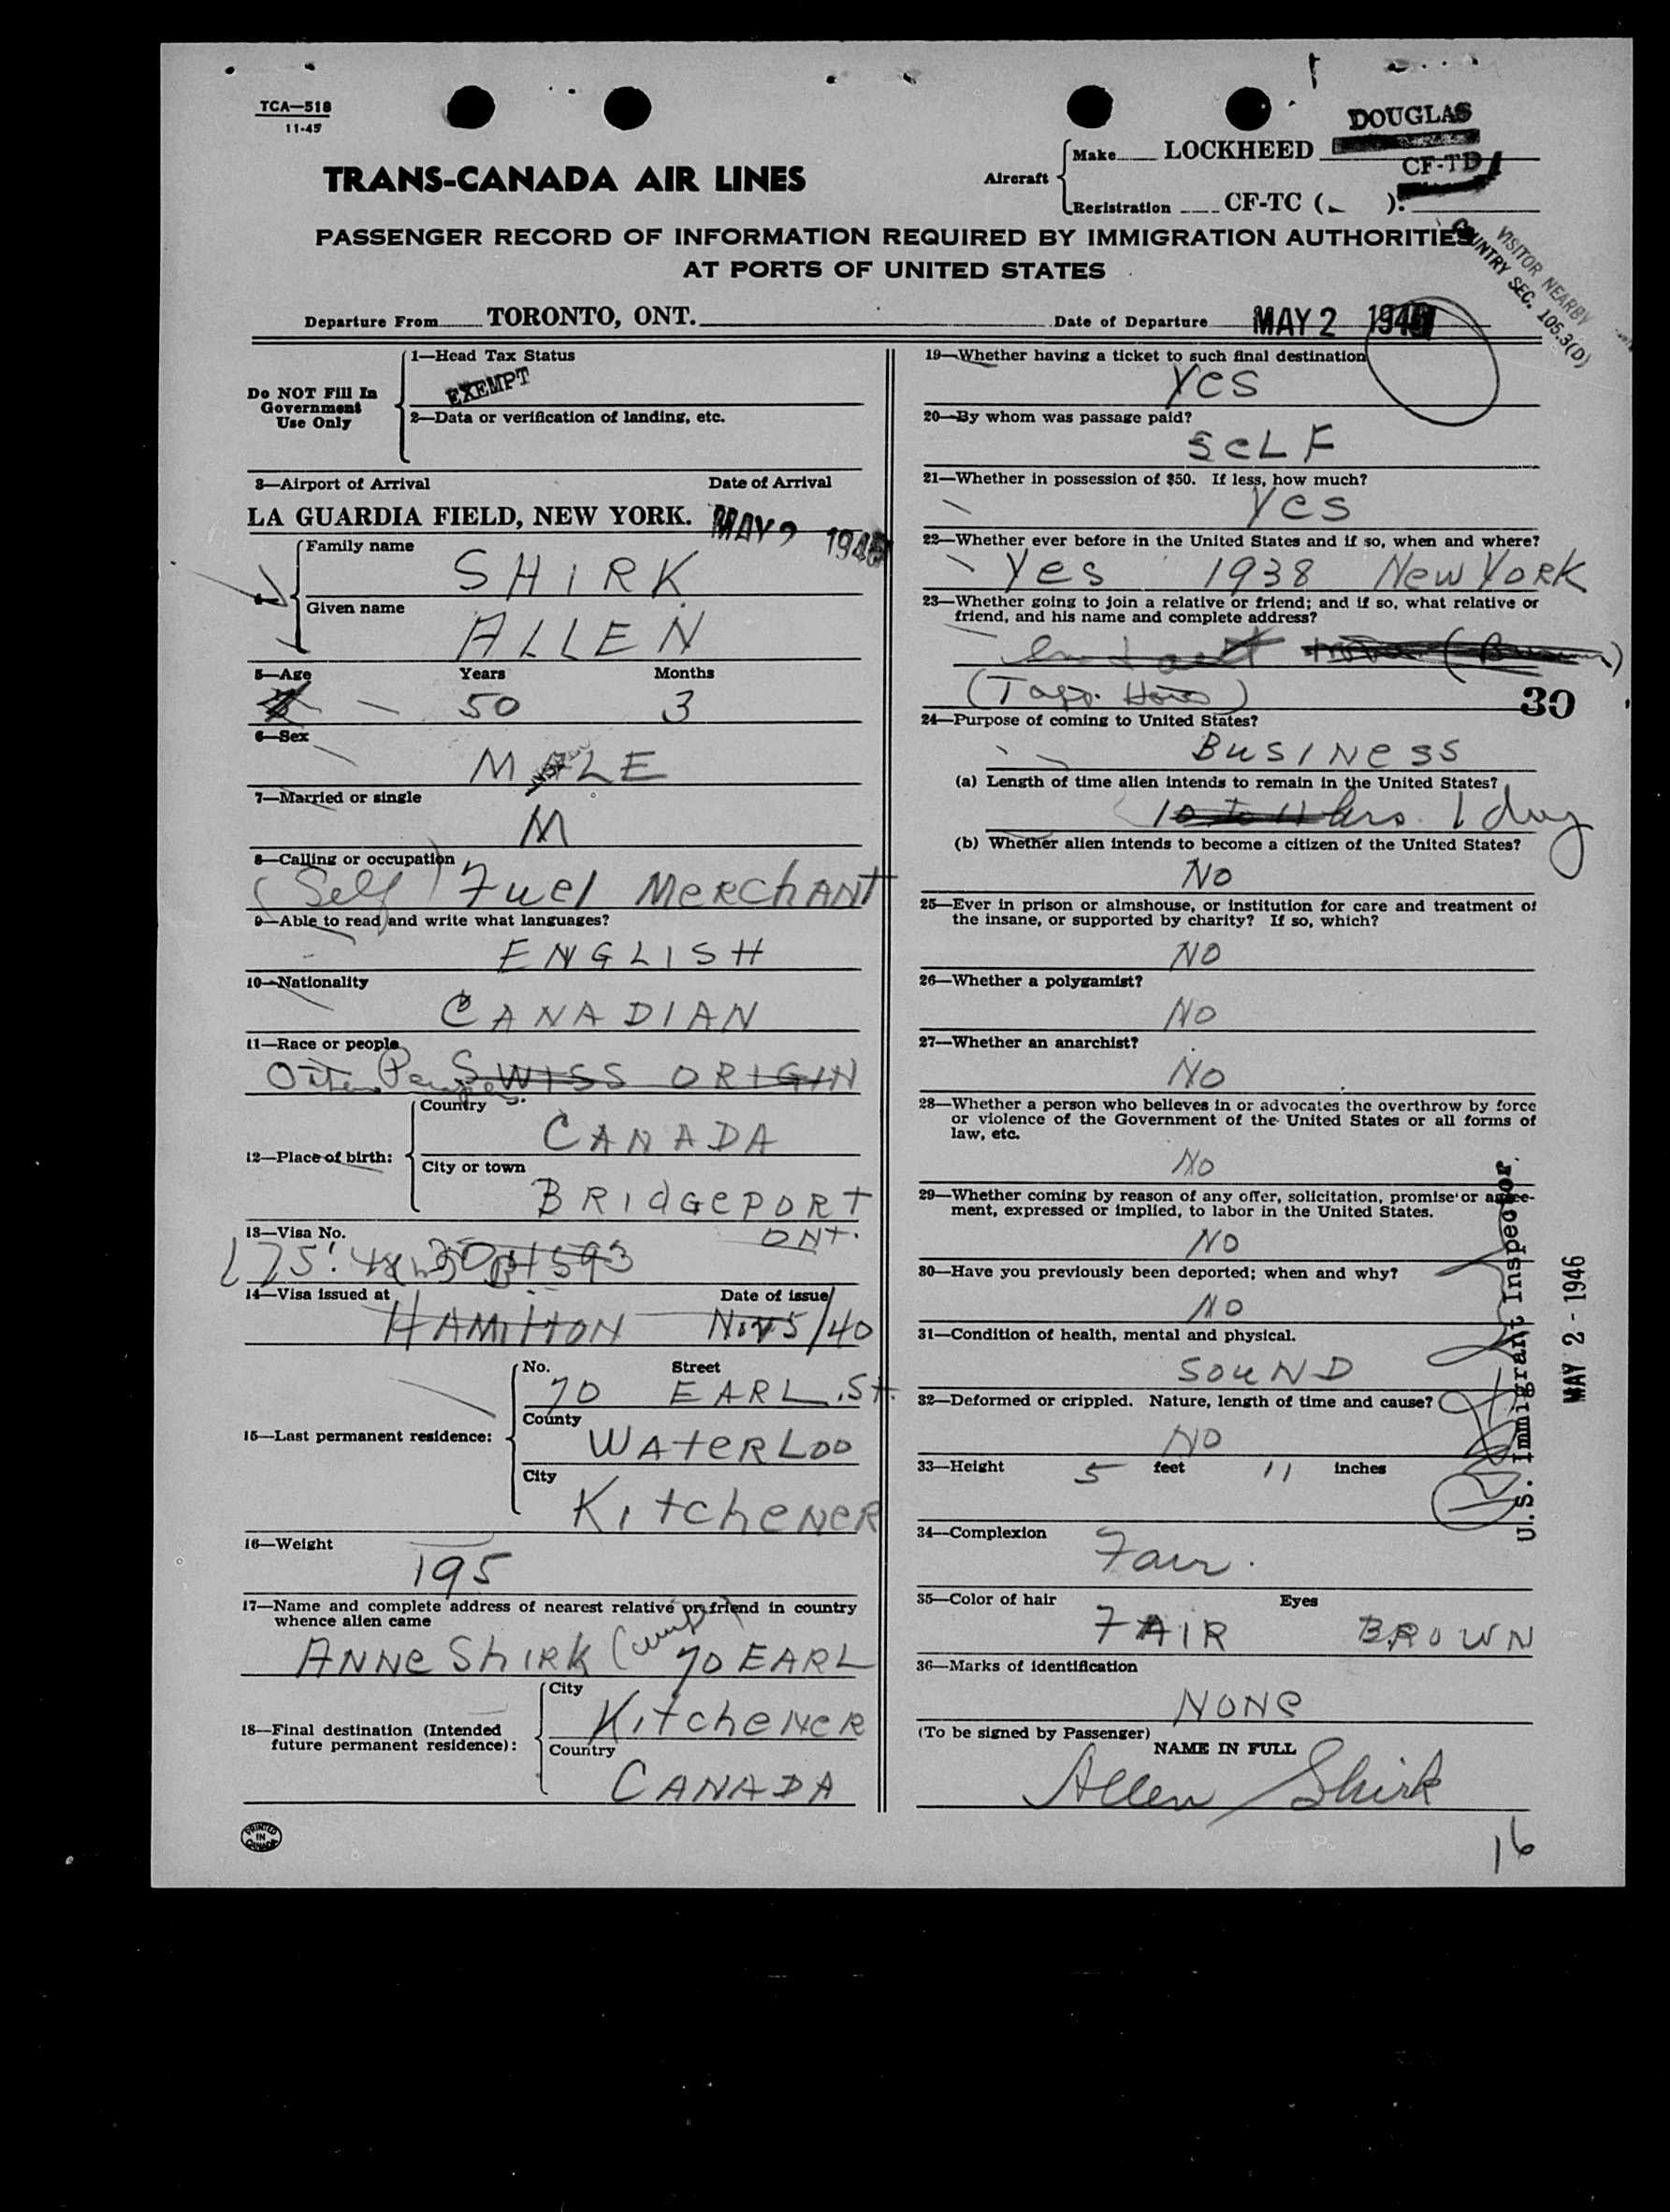 TCA—518
11-45
TRANS-CANADA AIR LINES
DOUGLAS
Aircraft
Make LOCKHEED
CF-TD
Registration CF-TC ( ).
PASSENGER RECORD OF INFORMATION REQUIRED BY IMMIGRATION AUTHORITIES
AT PORTS OF UNITED STATES
VISITOR NEARBY
COUNTRY SEC. 105.3(D)
Departure From TORONTO, ONT. Date of Departure MAY 2 1946
Do NOT Fill In
Government
Use Only
1—Head Tax Status
EXEMPT
2—Data or verification of landing, etc.
3—Airport of Arrival Date of Arrival
LA GUARDIA FIELD, NEW YORK. MAY 2 1946
Family name
SHIRK
Given name
ALLEN
5—Age Years Months
50 3
6—Sex
MALE
7—Married or single
M
8—Calling or occupation
(Self) Fuel MerchANT
9—Able to read and write what languages?
ENGLISH
10—Nationality
CANADIAN
11—Race or people
SWISS ORIGIN
12—Place of birth:
Country
CANADA
City or town
BRIdGePORT
ONT.
13—Visa No.
14—Visa issued at Date of issue
HAMIltON Nov 5/40
15—Last permanent residence:
No. Street
70 EARL St.
County
WAterLOO
City
KitcheNeR
16—Weight
195
17—Name and complete address of nearest relative or friend in country
whence alien came
ANNe ShIRK (wife) 70 EARL
18—Final destination (Intended
future permanent residence):
City
KitcheNeR
Country
CANADA
PRINTED
IN
CANADA
19—Whether having a ticket to such final destination
Yes
20—By whom was passage paid?
SeLF
21—Whether in possession of $50. If less, how much?
Yes
22—Whether ever before in the United States and if so, when and where?
Yes 1938 New YoRK
23—Whether going to join a relative or friend; and if so, what relative or
friend, and his name and complete address?
30
24—Purpose of coming to United States?
BusiNess
(a) Length of time alien intends to remain in the United States?
10 to 11 hrs. 1 day
(b) Whether alien intends to become a citizen of the United States?
No
25—Ever in prison or almshouse, or institution for care and treatment of
the insane, or supported by charity? If so, which?
NO
26—Whether a polygamist?
No
27—Whether an anarchist?
No
28—Whether a person who believes in or advocates the overthrow by force
or violence of the Government of the United States or all forms of
law, etc.
No
29—Whether coming by reason of any offer, solicitation, promise or agree-
ment, expressed or implied, to labor in the United States.
NO
30—Have you previously been deported; when and why?
NO
31—Condition of health, mental and physical.
SouND
32—Deformed or crippled. Nature, length of time and cause?
NO
33—Height 5 feet 11 inches
34—Complexion
Fair.
35—Color of hair Eyes
FAIR BROWN
36—Marks of identification
NONe
(To be signed by Passenger)
NAME IN FULL
Allen Shirk
U.S. Immigrant Inspector.
MAY 2 - 1946
16